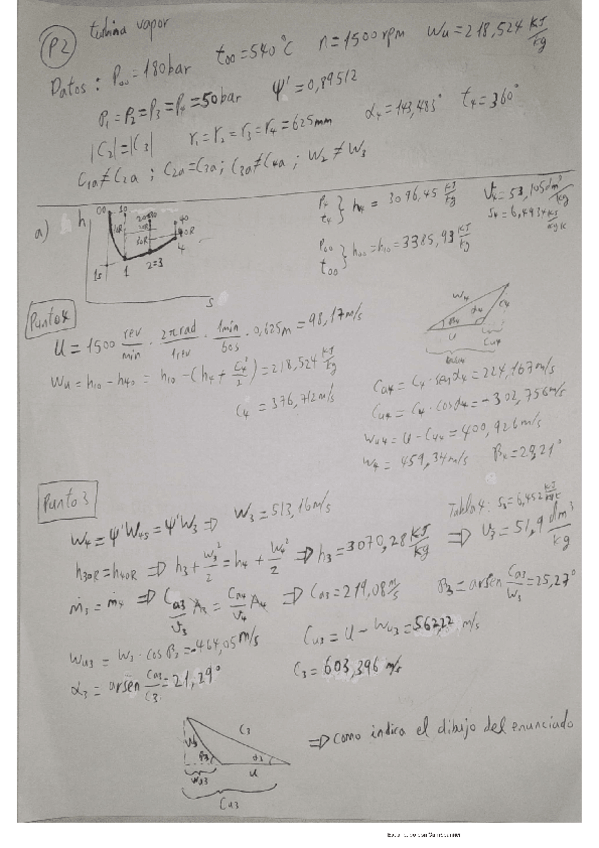 P2 turbina vapor
Datos: P₀₀ = 180bar t₀₀ = 540°C n = 1500rpm Wu = 218,524 KJ/kg
P₁ = P₂ = P₃ = P₄ = 50bar ψ' = 0,89512
|C₂| = |C₃| r₁ = r₂ = r₃ = r₄ = 625mm α₄ = 143,483° t₄ = 360°
C₁a ≠ C₂a ; C₂a = C₃a ; C₃a ≠ C₄a ; W₂ ≠ W₃
a) h
00 10
1s 1 2=3 4
s
P₄ t₄ } h₄ = 3096,45 KJ/kg v₄ = 53,105 dm³/kg
s₄ = 6,4934 KJ/kg K
P₀₀ t₀₀ } h₀₀ = h₁₀ = 3385,93 KJ/kg
Punto 4
U = 1500 rev/min · 2π rad/1rev · 1min/60s · 0,625m = 98,17m/s
Wu = h₁₀ - h₄₀ = h₁₀ - (h₄ + C₄²/2) = 218,524 KJ/kg
C₄ = 376,712 m/s
Ca₄ = C₄ · senα₄ = 224,167m/s
Cu₄ = C₄ · cosα₄ = -302,756m/s
Wu₄ = U - Cu₄ = 400,926m/s
W₄ = 459,34m/s β₄ = 29,21°
Punto 3
W₄ = ψ'W₄s = ψ'W₃ ⇒ W₃ = 513,16m/s
Tabla 4: s₃ = 6,452
h₃₀R = h₄₀R ⇒ h₃ + W₃²/2 = h₄ + W₄²/2 ⇒ h₃ = 3070,28 KJ/kg ⇒ v₃ = 51,9 dm³/kg
ṁ₃ = ṁ₄ ⇒ Ca₃/v₃ A₃ = Ca₄/v₄ A₄ ⇒ Ca₃ = 219,08m/s β₃ = arsen Ca₃/W₃ = 25,27°
Wu₃ = W₃ · cos β₃ = -464,05m/s Cu₃ = U - Wu₃ = 562,22 m/s
α₃ = arsen Ca₃/C₃ = 21,29° C₃ = 603,396 m/s
W₃ β₃ C₃ α₃
Wu₃ u
Cu₃
⇒ como indica el dibujo del enunciado